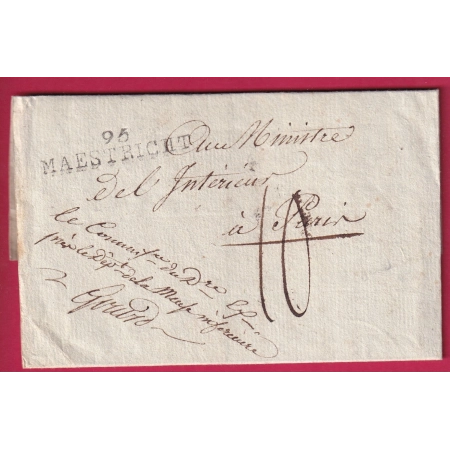 95
MAESTRICHT
Au Ministre
Del Intérieur
à Paris
10
le Commissre du Dre Ex
près le dépt de la Meuse inférieure
Girard